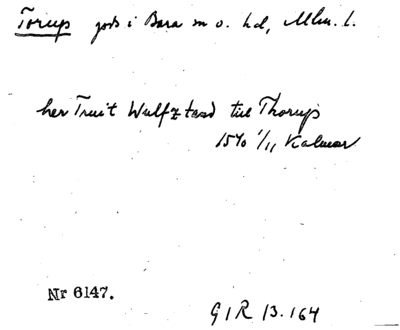 Torup gods i Bara sn o. hd, Mlm. l.
her Truit Wulfztand till Thorup
1540 1/11 Kalmar
Nr 6147.
G I R 13. 164